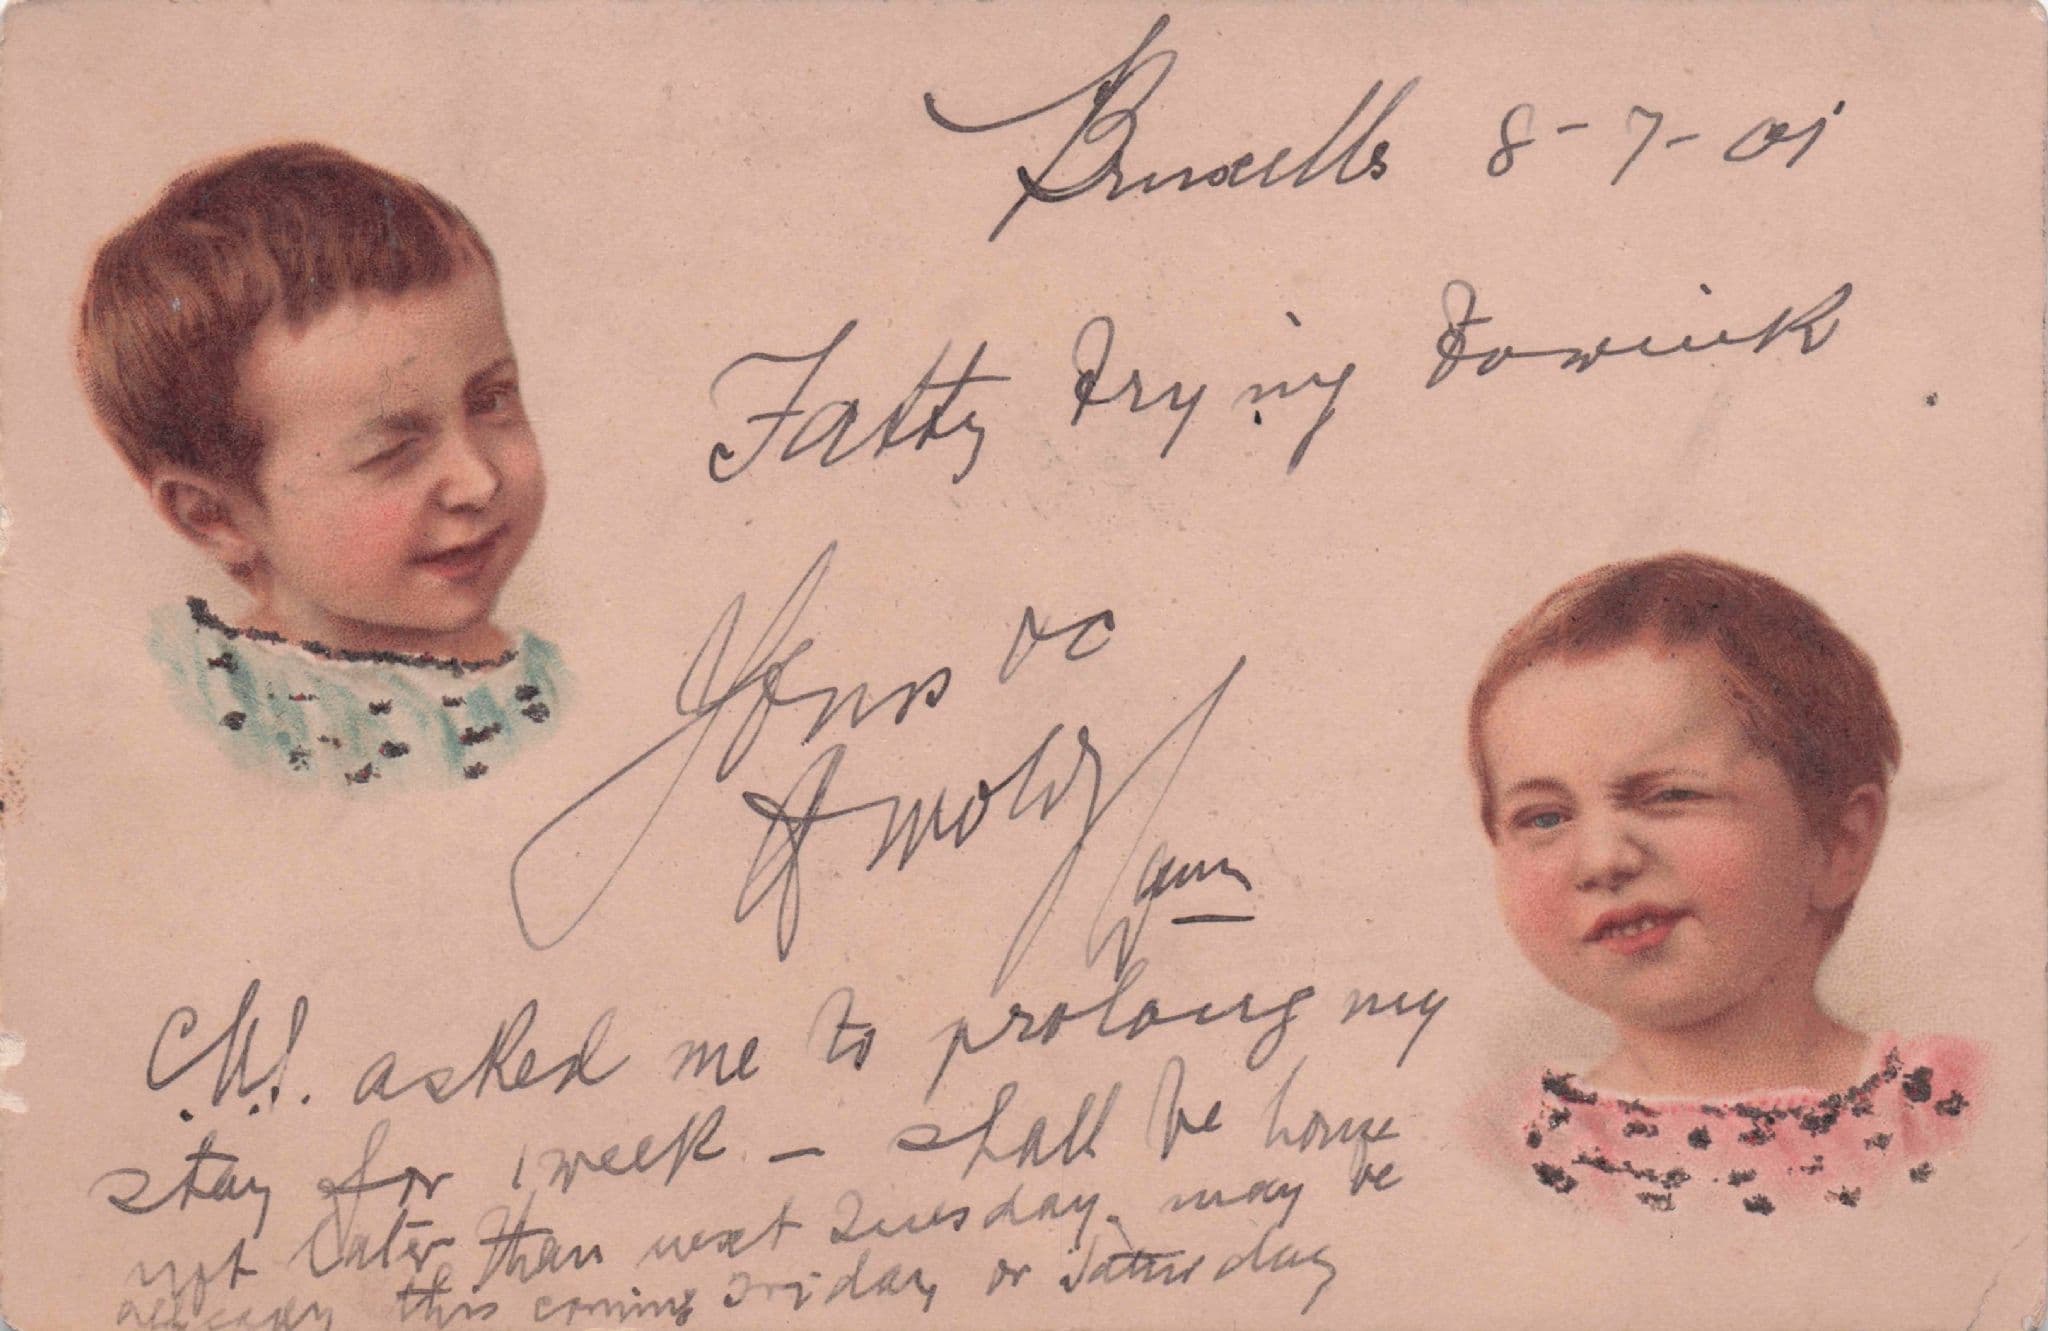 Bruxelles 8-7-01
Fatty trying to wink
Yours &c
Arnold
C.W. asked me to prolong my
stay for 1 week – shall be home
not later than next Tuesday. may be
already this coming Friday or Saturday